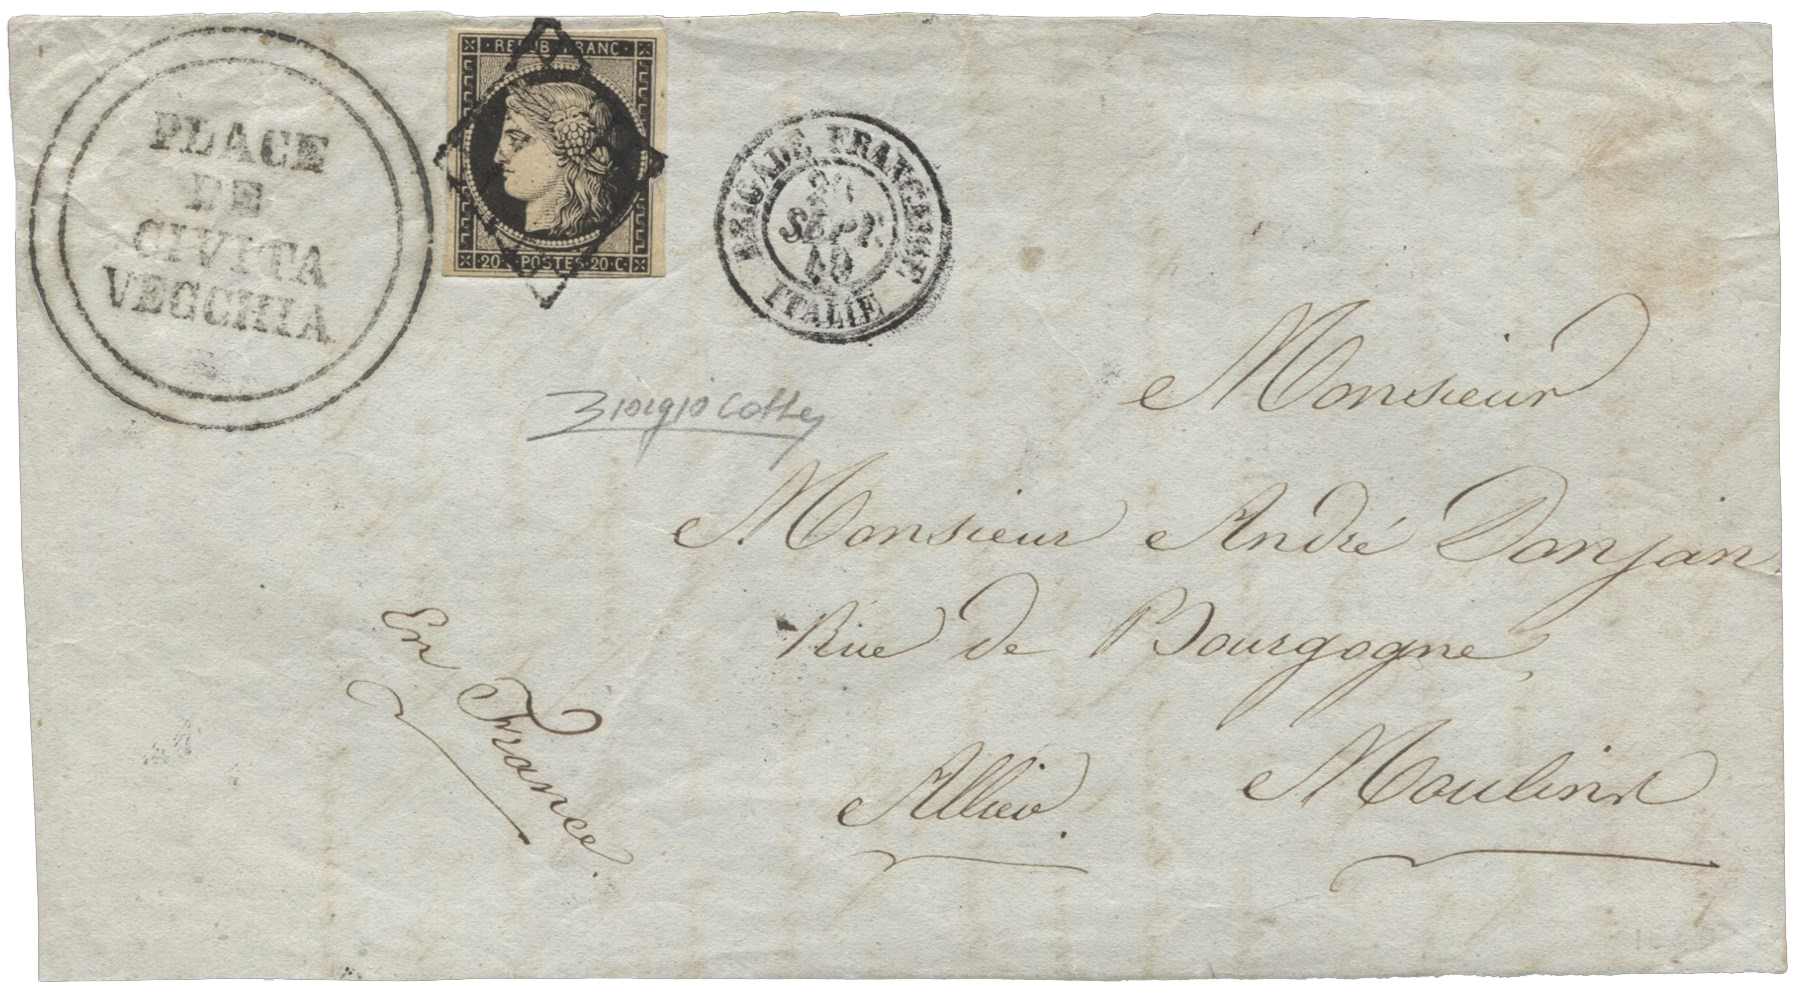 PLACE
DE
CIVITA
VECCHIA
REPUB FRANC
20 C POSTES 20 C
BRIGADE FRANCAISE
SEPT.
49
ITALIE
Monsieur
Monsieur André Donjan
Rue de Bourgogne
Moulins
Allier.
En France.